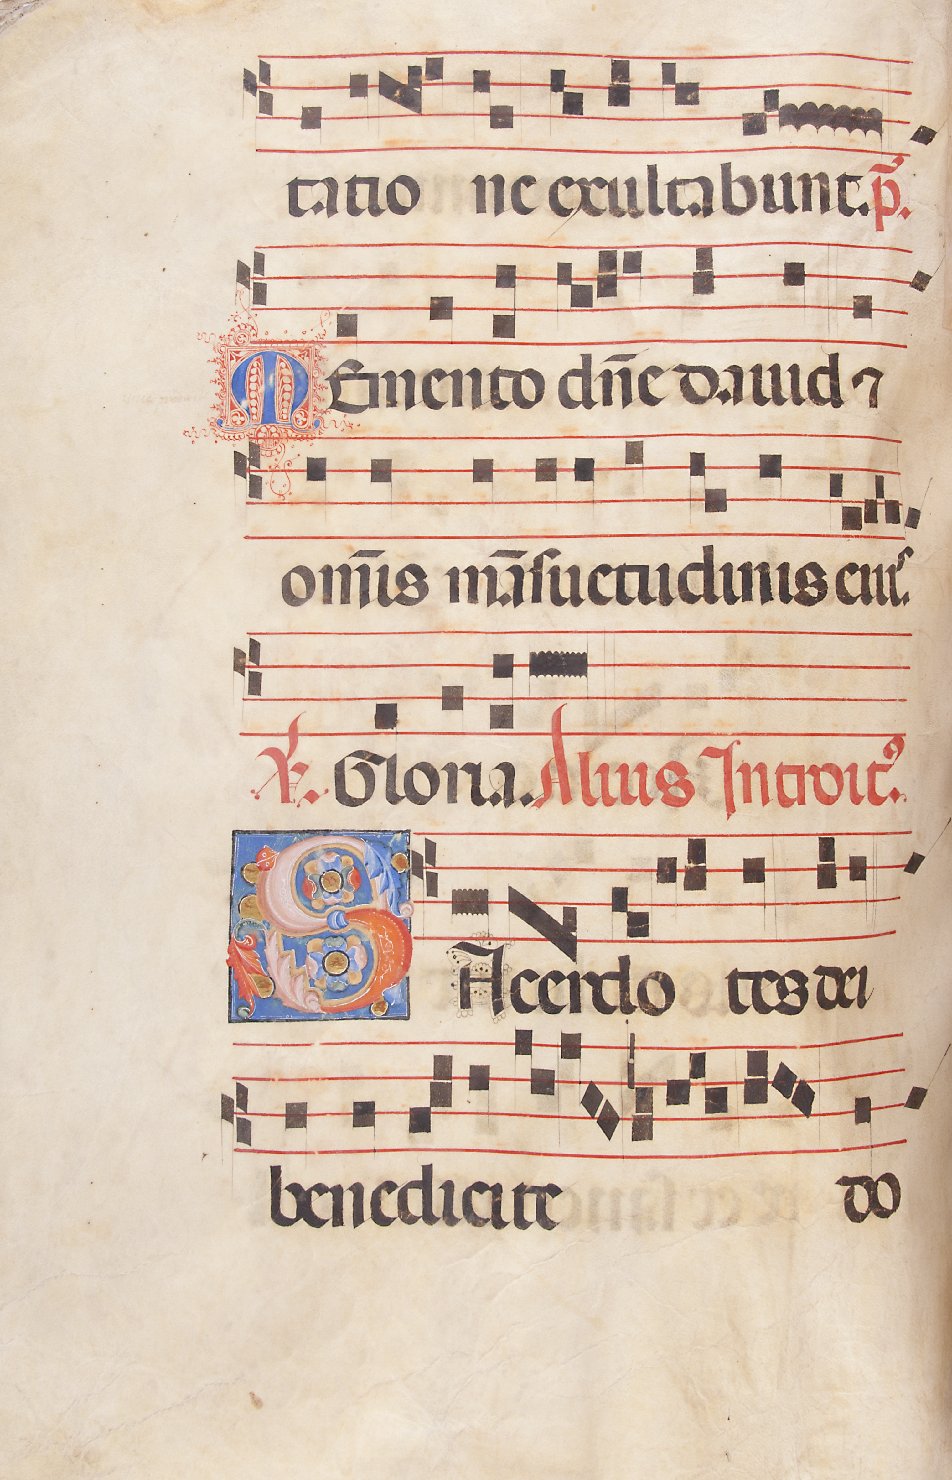 tatio ne exultabunt. p̄.
MEmento dn̄e dauid ⁊
om̄is māsuetudinis eiꝰ.
℣. Gloria. Alius Introitꝰ.
SAcerdo tes dei
benedicite do